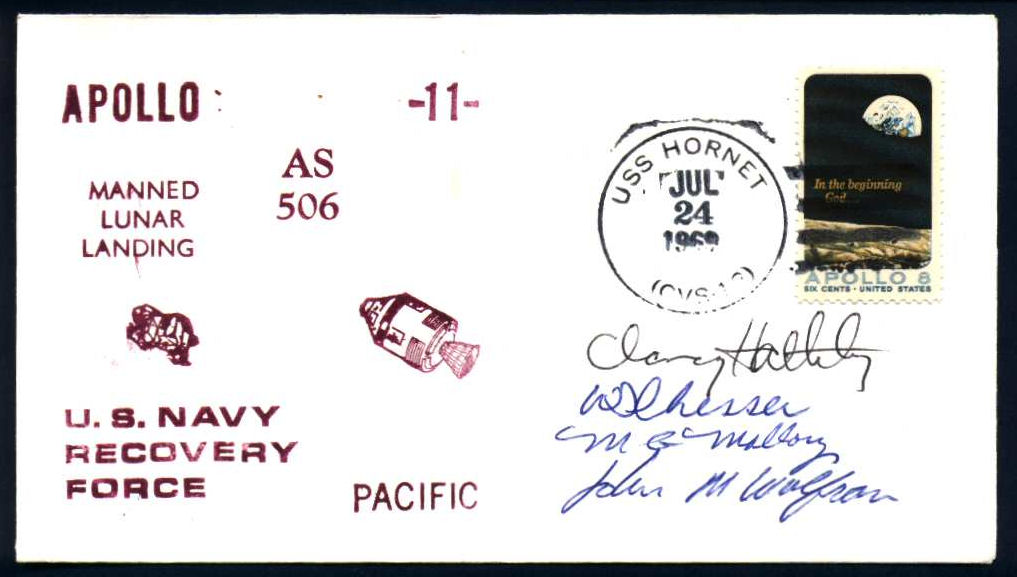 APOLLO : -11-
AS
506
MANNED
LUNAR
LANDING
U. S. NAVY
RECOVERY
FORCE
PACIFIC
USS HORNET
JUL
24
1969
(CVS-12)
In the beginning
God...
APOLLO 8
SIX CENTS · UNITED STATES
Clancy Hatleberg
W D Chesser
M G Mallory
John M Wolfram